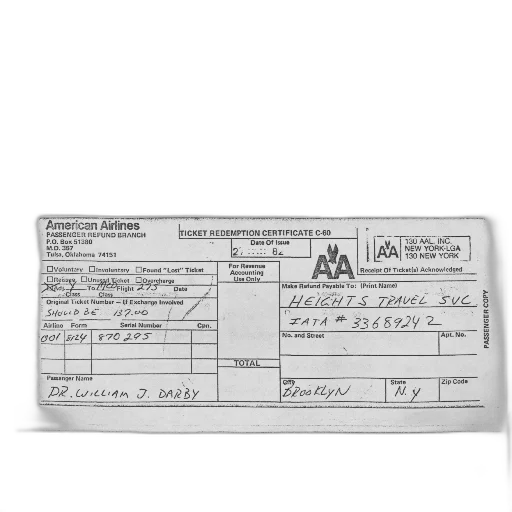 American Airlines
PASSENGER REFUND BRANCH
P.O. Box 51380
M.D. 367
Tulsa, Oklahoma 74151
TICKET REDEMPTION CERTIFICATE C-60
Date Of Issue
82
AA
AA
130 AAL. INC.
NEW YORK-LGA
130 NEW YORK
Receipt Of Ticket(s) Acknowledged
Voluntary Involuntary Found "Lost" Ticket
Recovery Unused Ticket Overcharge
To Flight Date
Class Class
Original Ticket Number — If Exchange Involved
SHOULD BE 137.00
Airline Form Serial Number Cpn.
001 8124 870295
Passenger Name
DR. WILLIAM J. DARBY
For Revenue
Accounting
Use Only
TOTAL
Make Refund Payable To: (Print Name)
HEIGHTS TRAVEL SVC
IATA # 33689242
No. and Street Apt. No.
City State Zip Code
BROOKLYN N.Y
PASSENGER COPY